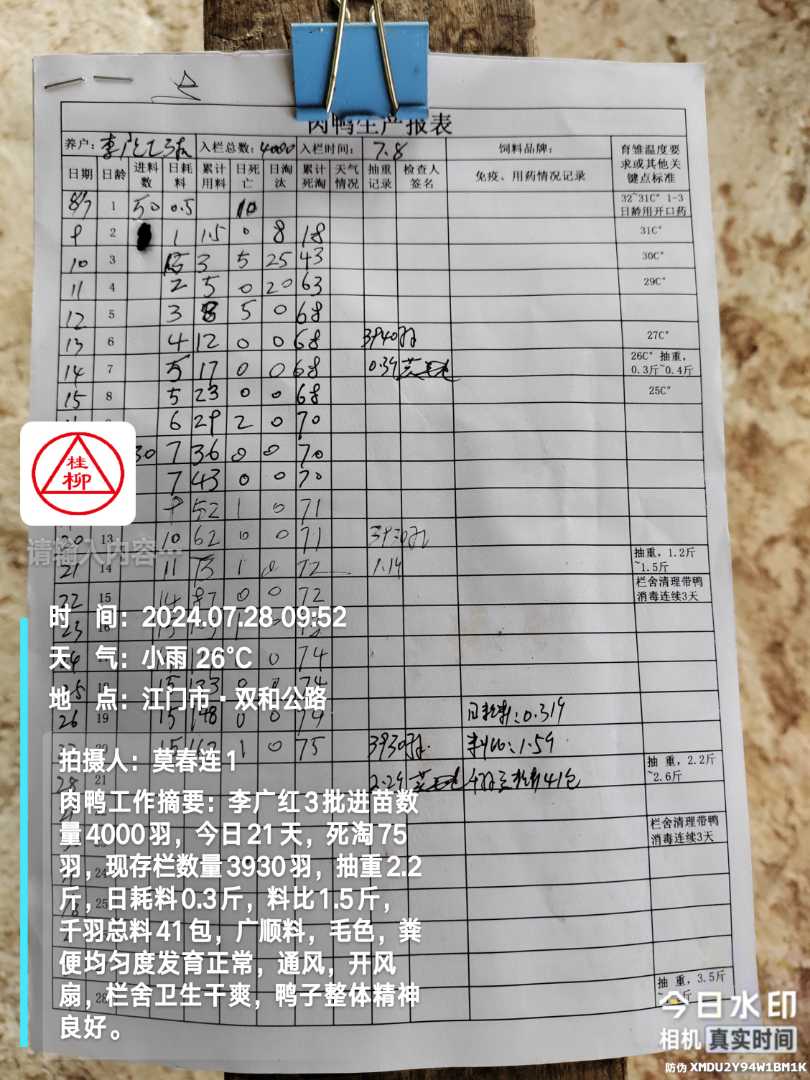 肉鸭生产报表
养户: 李广红3批 入栏总数: 4000 入栏时间: 7.8 饲料品牌: 育雏温度要求或其他关键点标准
日期 日龄 进料数 日耗料 累计用料 日死亡 日淘汰 累计死淘 天气情况 抽重记录 检查人签名 免疫、用药情况记录
8/7 1 50 0.5 10 32~31C° 1-3日龄用开口药
9 2 1 1.5 0 8 18 31C°
10 3 1.5 3 5 25 43 30C°
11 4 2 5 0 20 63 29C°
12 5 3 8 5 0 68
13 6 4 12 0 0 68 3940羽 27C°
14 7 5 17 0 0 68 0.39 26C° 抽重,0.3斤~0.4斤
15 8 5 23 0 0 68 25C°
6 29 2 0 70
30 7 36 0 0 70
7 43 0 0 70
9 52 1 0 71
20 13 10 62 0 0 71 3930羽
21 14 11 73 1 0 72 1.14 抽重,1.2斤~1.5斤
22 15 14 87 0 0 72 栏舍清理带鸭消毒连续3天
23 16
0 74
25 18 15 133 0 0 74
26 19 15 148 0 0 74 日耗料:0.319
20 15 1 0 75 3930羽 料比:1.59
28 21 2.29 千羽总耗料41包 抽重,2.2斤~2.6斤
栏舍清理带鸭消毒连续3天
24
25
28 抽重,3.5斤
桂柳
请输入内容…
时 间: 2024.07.28 09:52
天 气: 小雨 26℃
地 点: 江门市·双和公路
拍摄人: 莫春连1
肉鸭工作摘要: 李广红3批进苗数
量4000羽，今日21天，死淘75
羽，现存栏数量3930羽，抽重2.2
斤，日耗料0.3斤，料比1.5斤，
千羽总料41包，广顺料，毛色，粪
便均匀度发育正常，通风，开风
扇，栏舍卫生干爽，鸭子整体精神
良好。
今日水印
相机 真实时间
防伪 XMDU2Y94W1BM1K